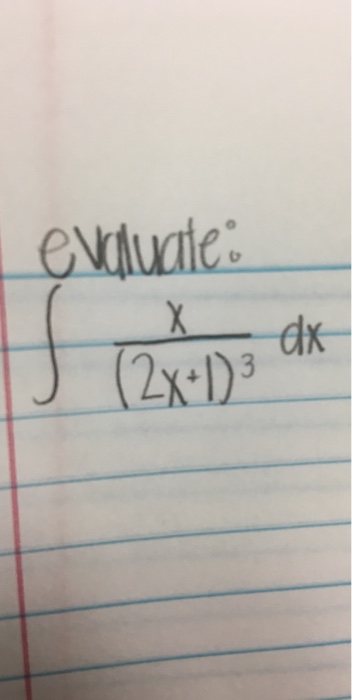 evaluate:
∫ x/(2x+1)³ dx